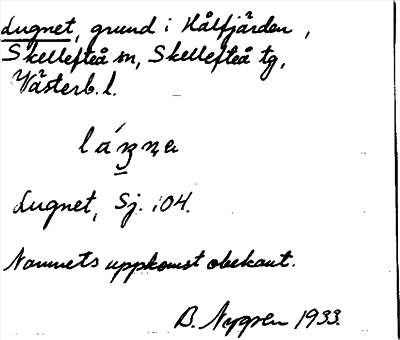 Lugnet, grund i Hålfjärden,
Skellefteå sn, Skellefteå tg,
Västerb. l.
Lugnet, Sj. 104.
Namnets uppkomst obekant.
B. Nygren 1933.